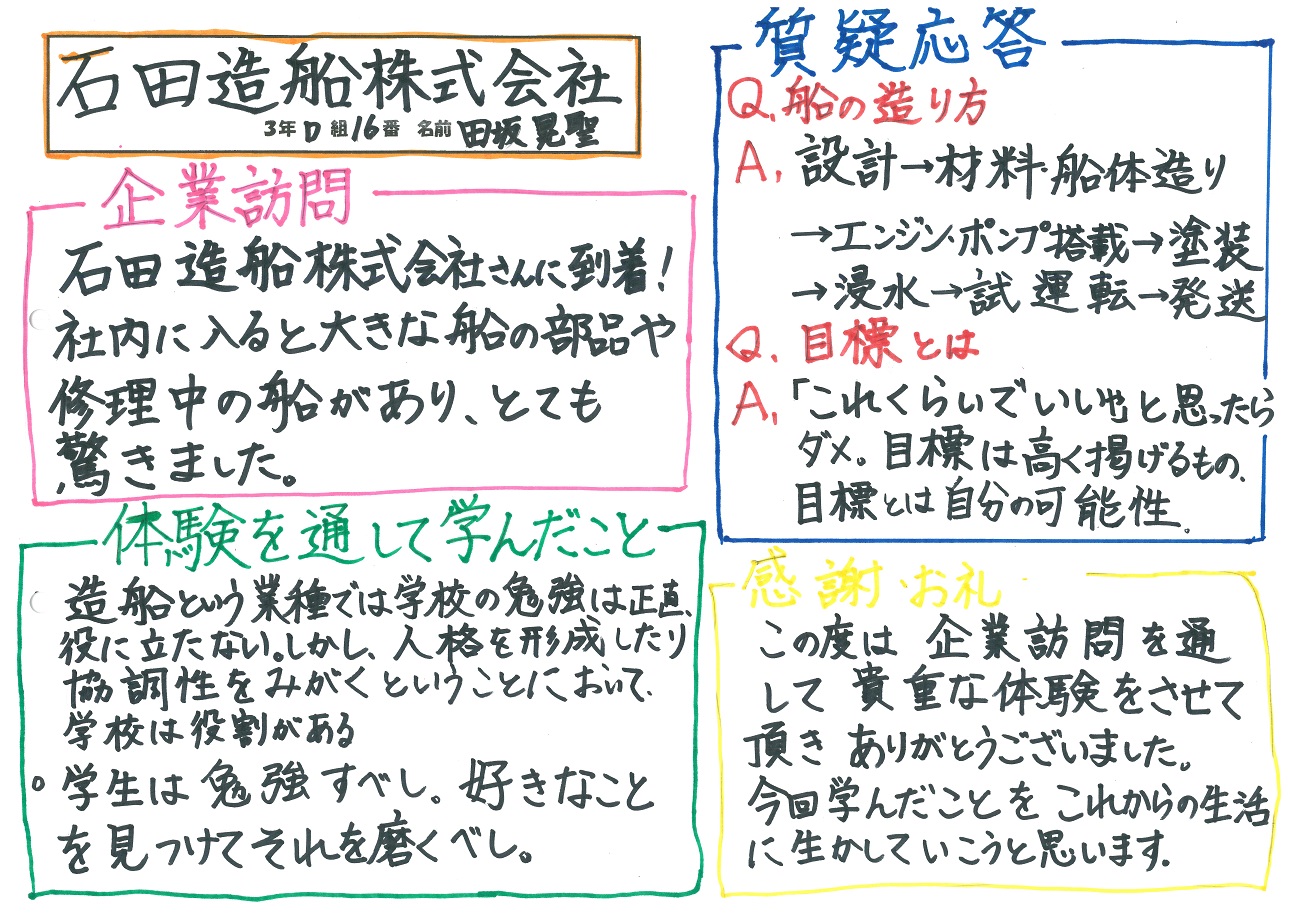 石田造船株式会社
3年D組16番 名前 田坂晃聖
企業訪問
石田造船株式会社さんに到着!
社内に入ると大きな船の部品や
修理中の船があり、とても
驚きました。
体験を通して学んだこと
造船という業種では学校の勉強は正直、
役に立たない。しかし、人格を形成したり
協調性をみがくということにおいて、
学校は役割がある
○学生は勉強すべし。好きなこと
を見つけてそれを磨くべし。
質疑応答
Q.船の造り方
A.設計→材料・船体造り
→エンジン・ポンプ搭載→塗装
→浸水→試運転→発送
Q.目標とは
A.「これくらいでいいや」と思ったら
ダメ。目標は高く掲げるもの、
目標とは自分の可能性。
感謝・お礼
この度は企業訪問を通
して貴重な体験をさせて
頂きありがとうございました。
今回学んだことをこれからの生活
に生かしていこうと思います。